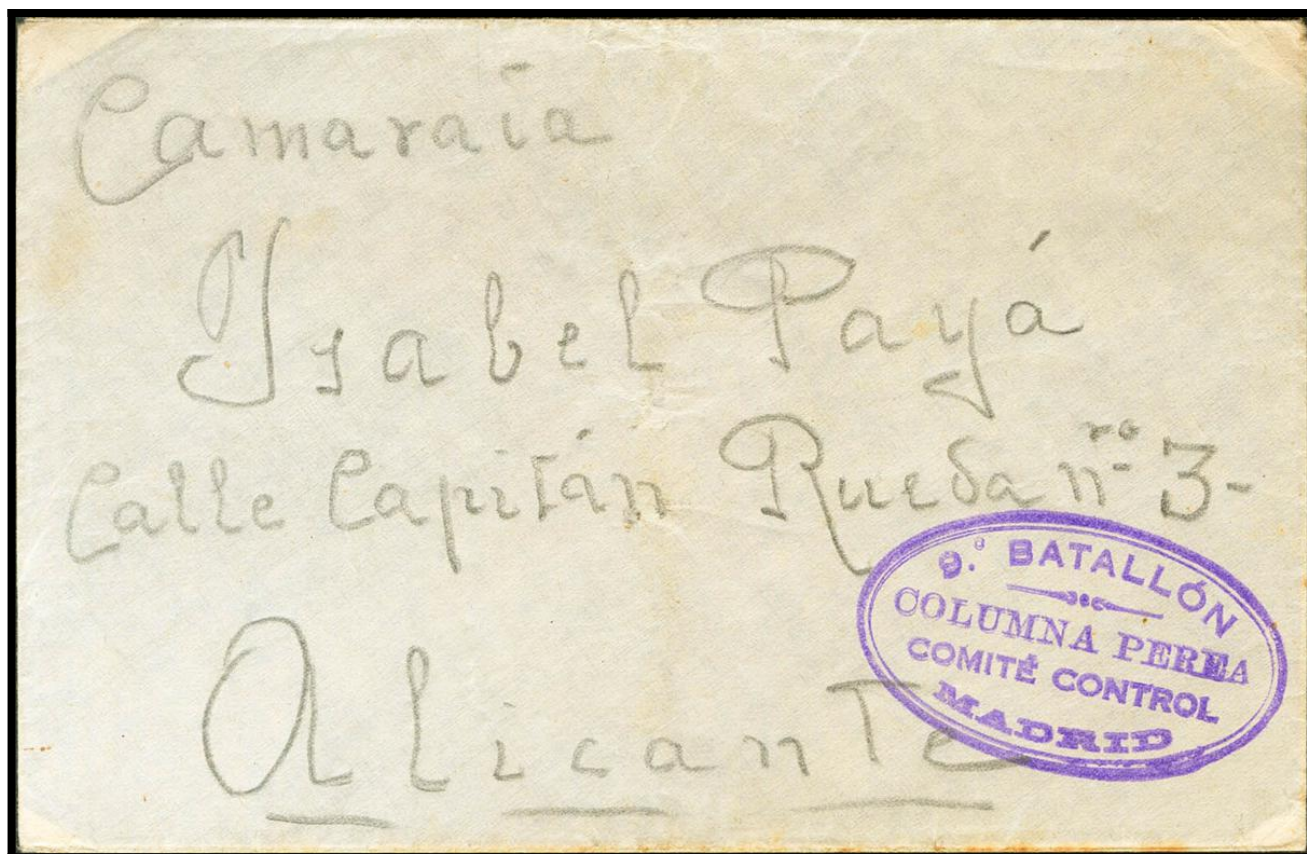 Camarada
Isabel Payá
Calle Capitán Rueda nro 3-
Alicante
9.º BATALLÓN
COLUMNA PEREA
COMITÉ CONTROL
MADRID